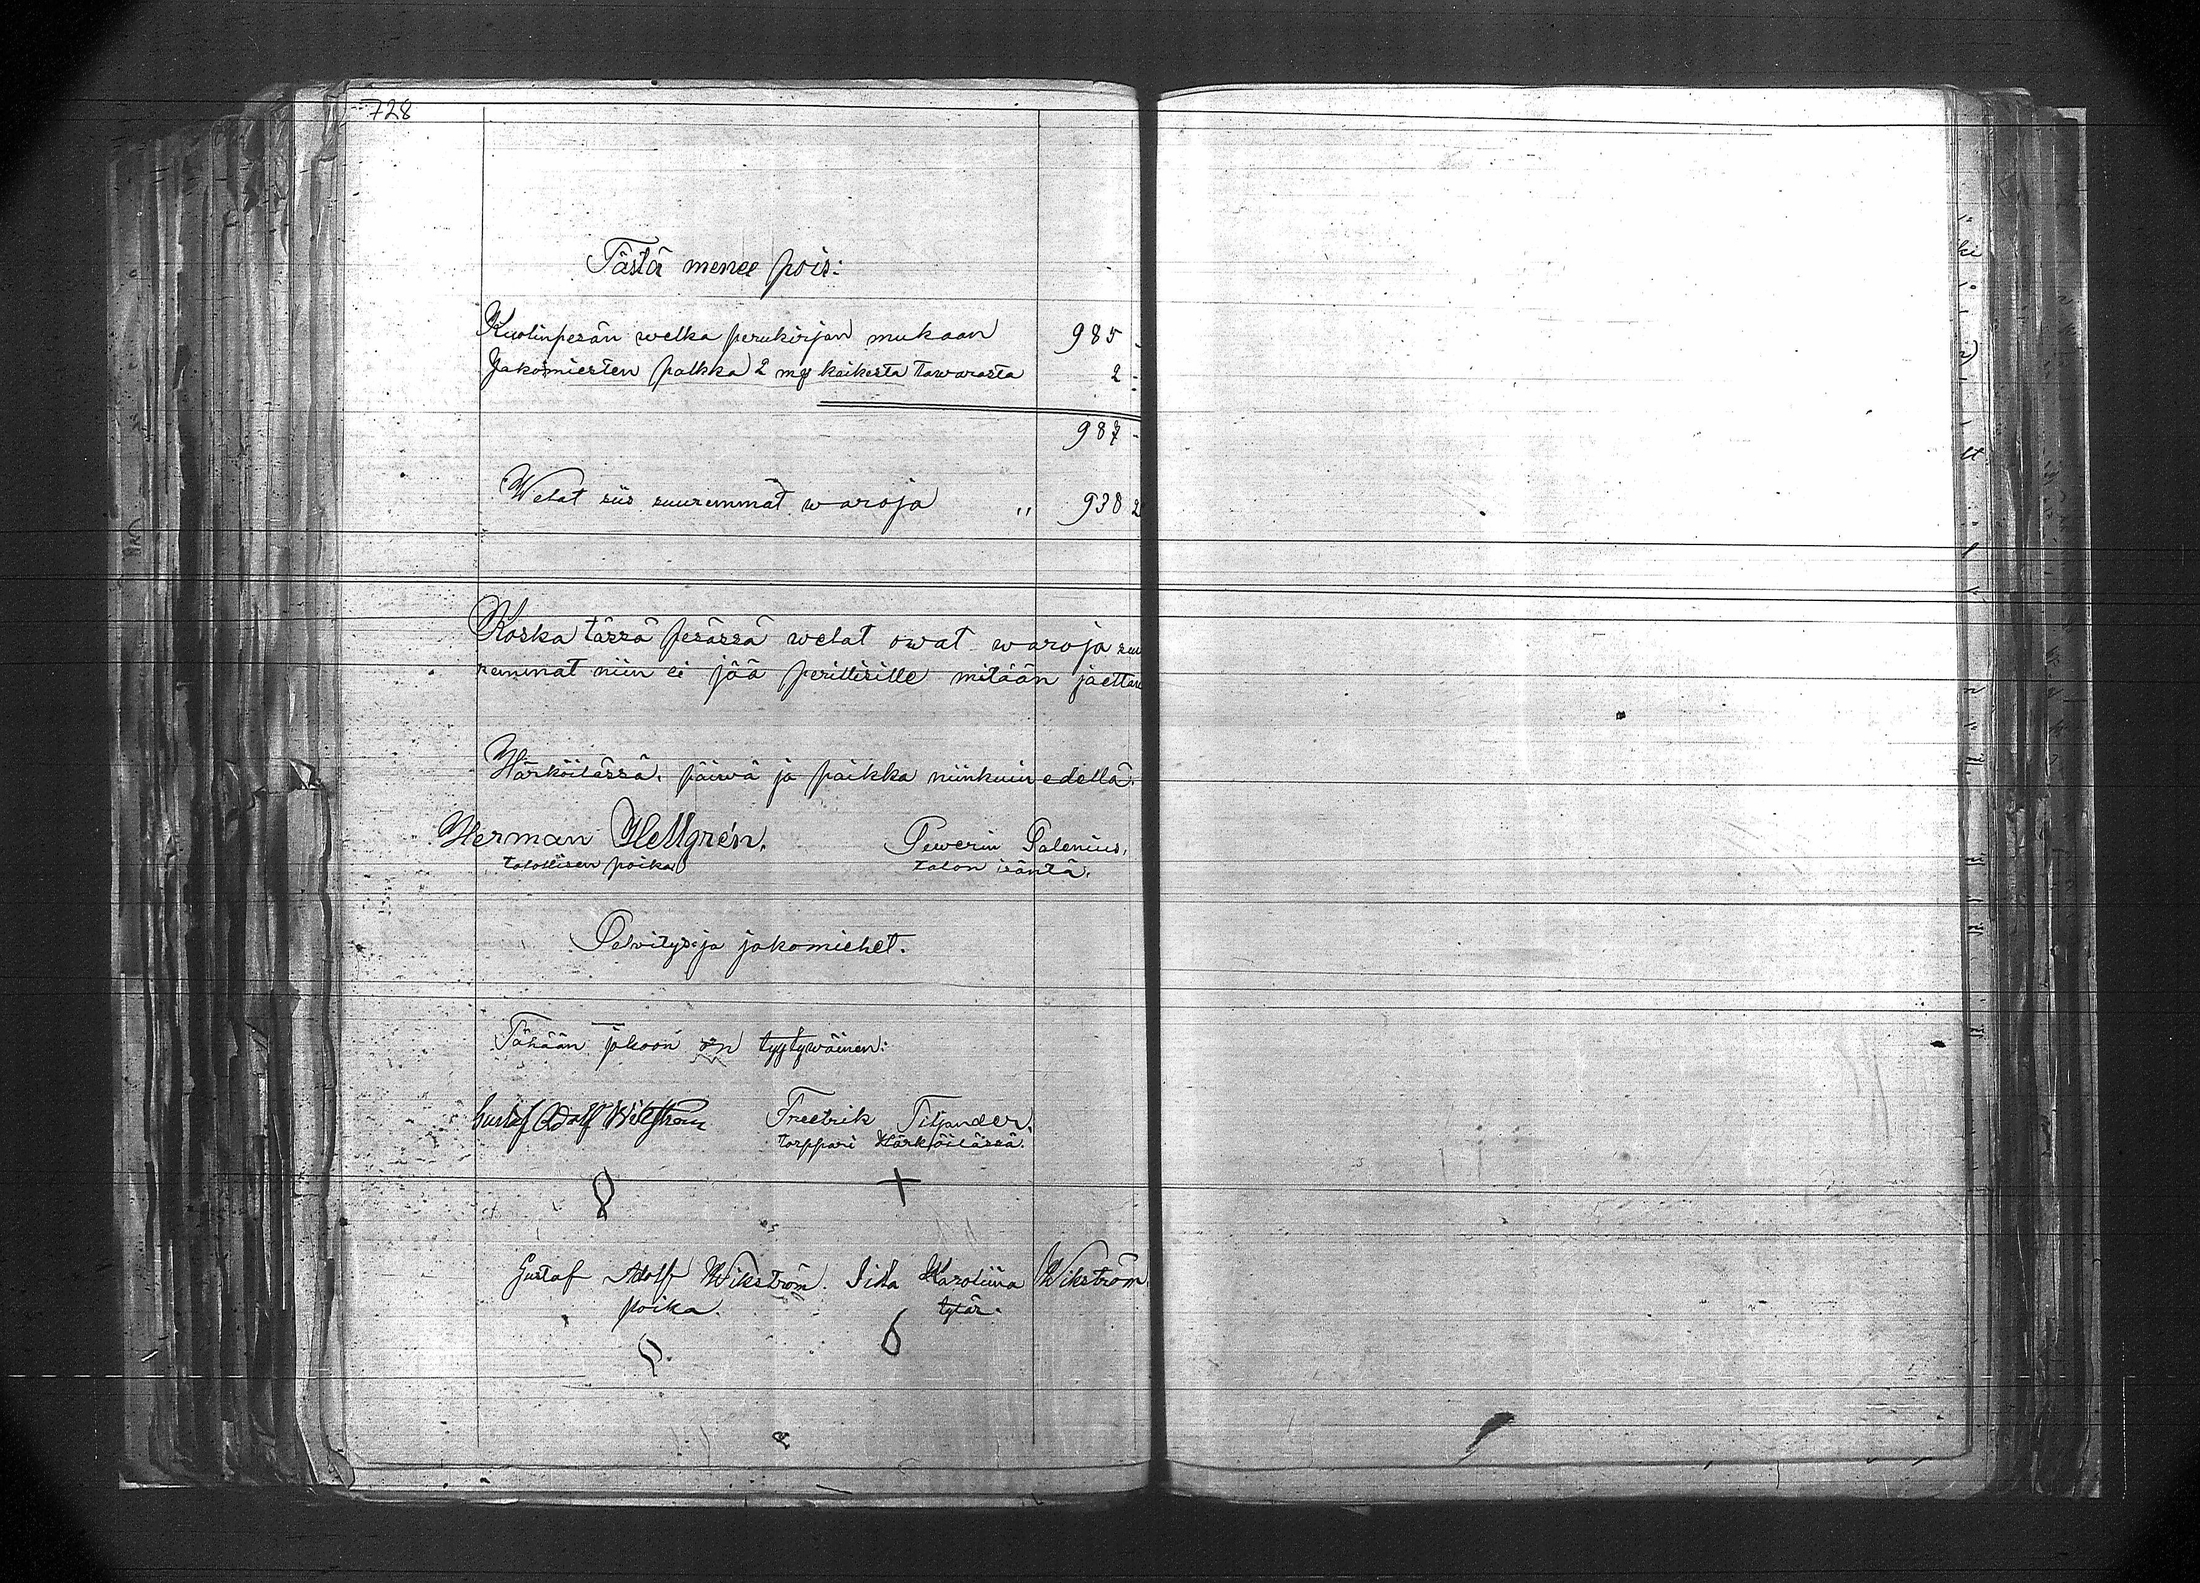 728
Tästä menee pois:
Kuolinpesän welka perukirjan mukaan 985 -
Jakomiesten palkka 2 mg kaikesta tawarasta 2 -
987 -
Welat siis suuremmat waroja " 938 2
Koska tässä pesässä welat owat waroja suu
remmat niin ei jää perillisille mitään jaettaw
Härköilässä, päiwä ja paikka niinkuin edellä.
Herman Hellgrén. Sewerin Salenius,
talollisen poika talon isäntä.
Selvitys- ja jakomiehet.
Tähän jakoon on tyytywäinen:
Gustaf Adolf Wikström Freetrik Tiljander,
torppari Härköilässä.
Gustaf Adolf Wikström. Iida Karoliina Wikström
poika. tytär.